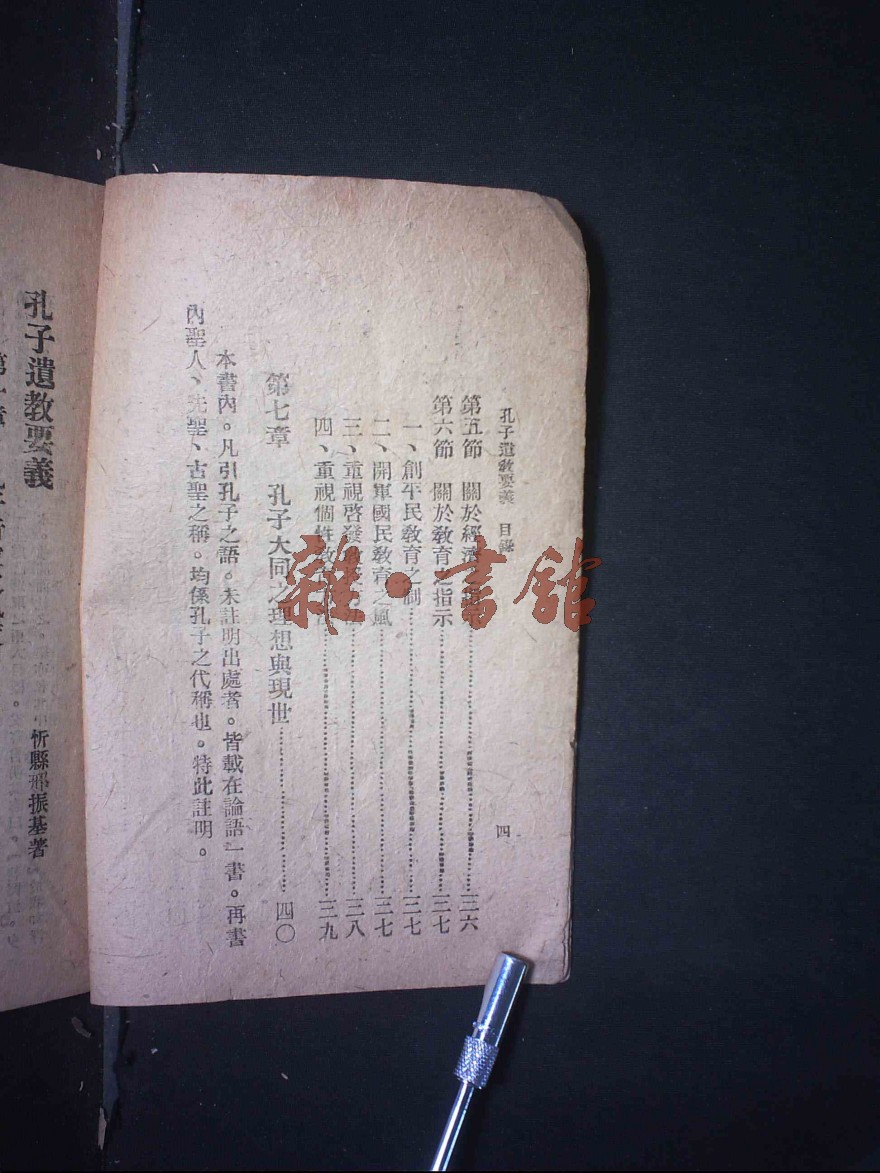 孔子遺教要義 目錄
四
第五節 關於經濟
三六
第六節 關於教育之指示
三七
一、創平民教育之制
三七
二、開軍國民教育之風
三七
三、重視啓發
三八
四、重視個性教育
三九
第七章 孔子大同之理想與現世
四〇
本書內。凡引孔子之語。未註明出處者。皆載在論語一書。再書
內聖人、先聖、古聖之稱。均係孔子之代稱也。特此註明。
孔子遺教要義
忻縣 振基著
雜·書館